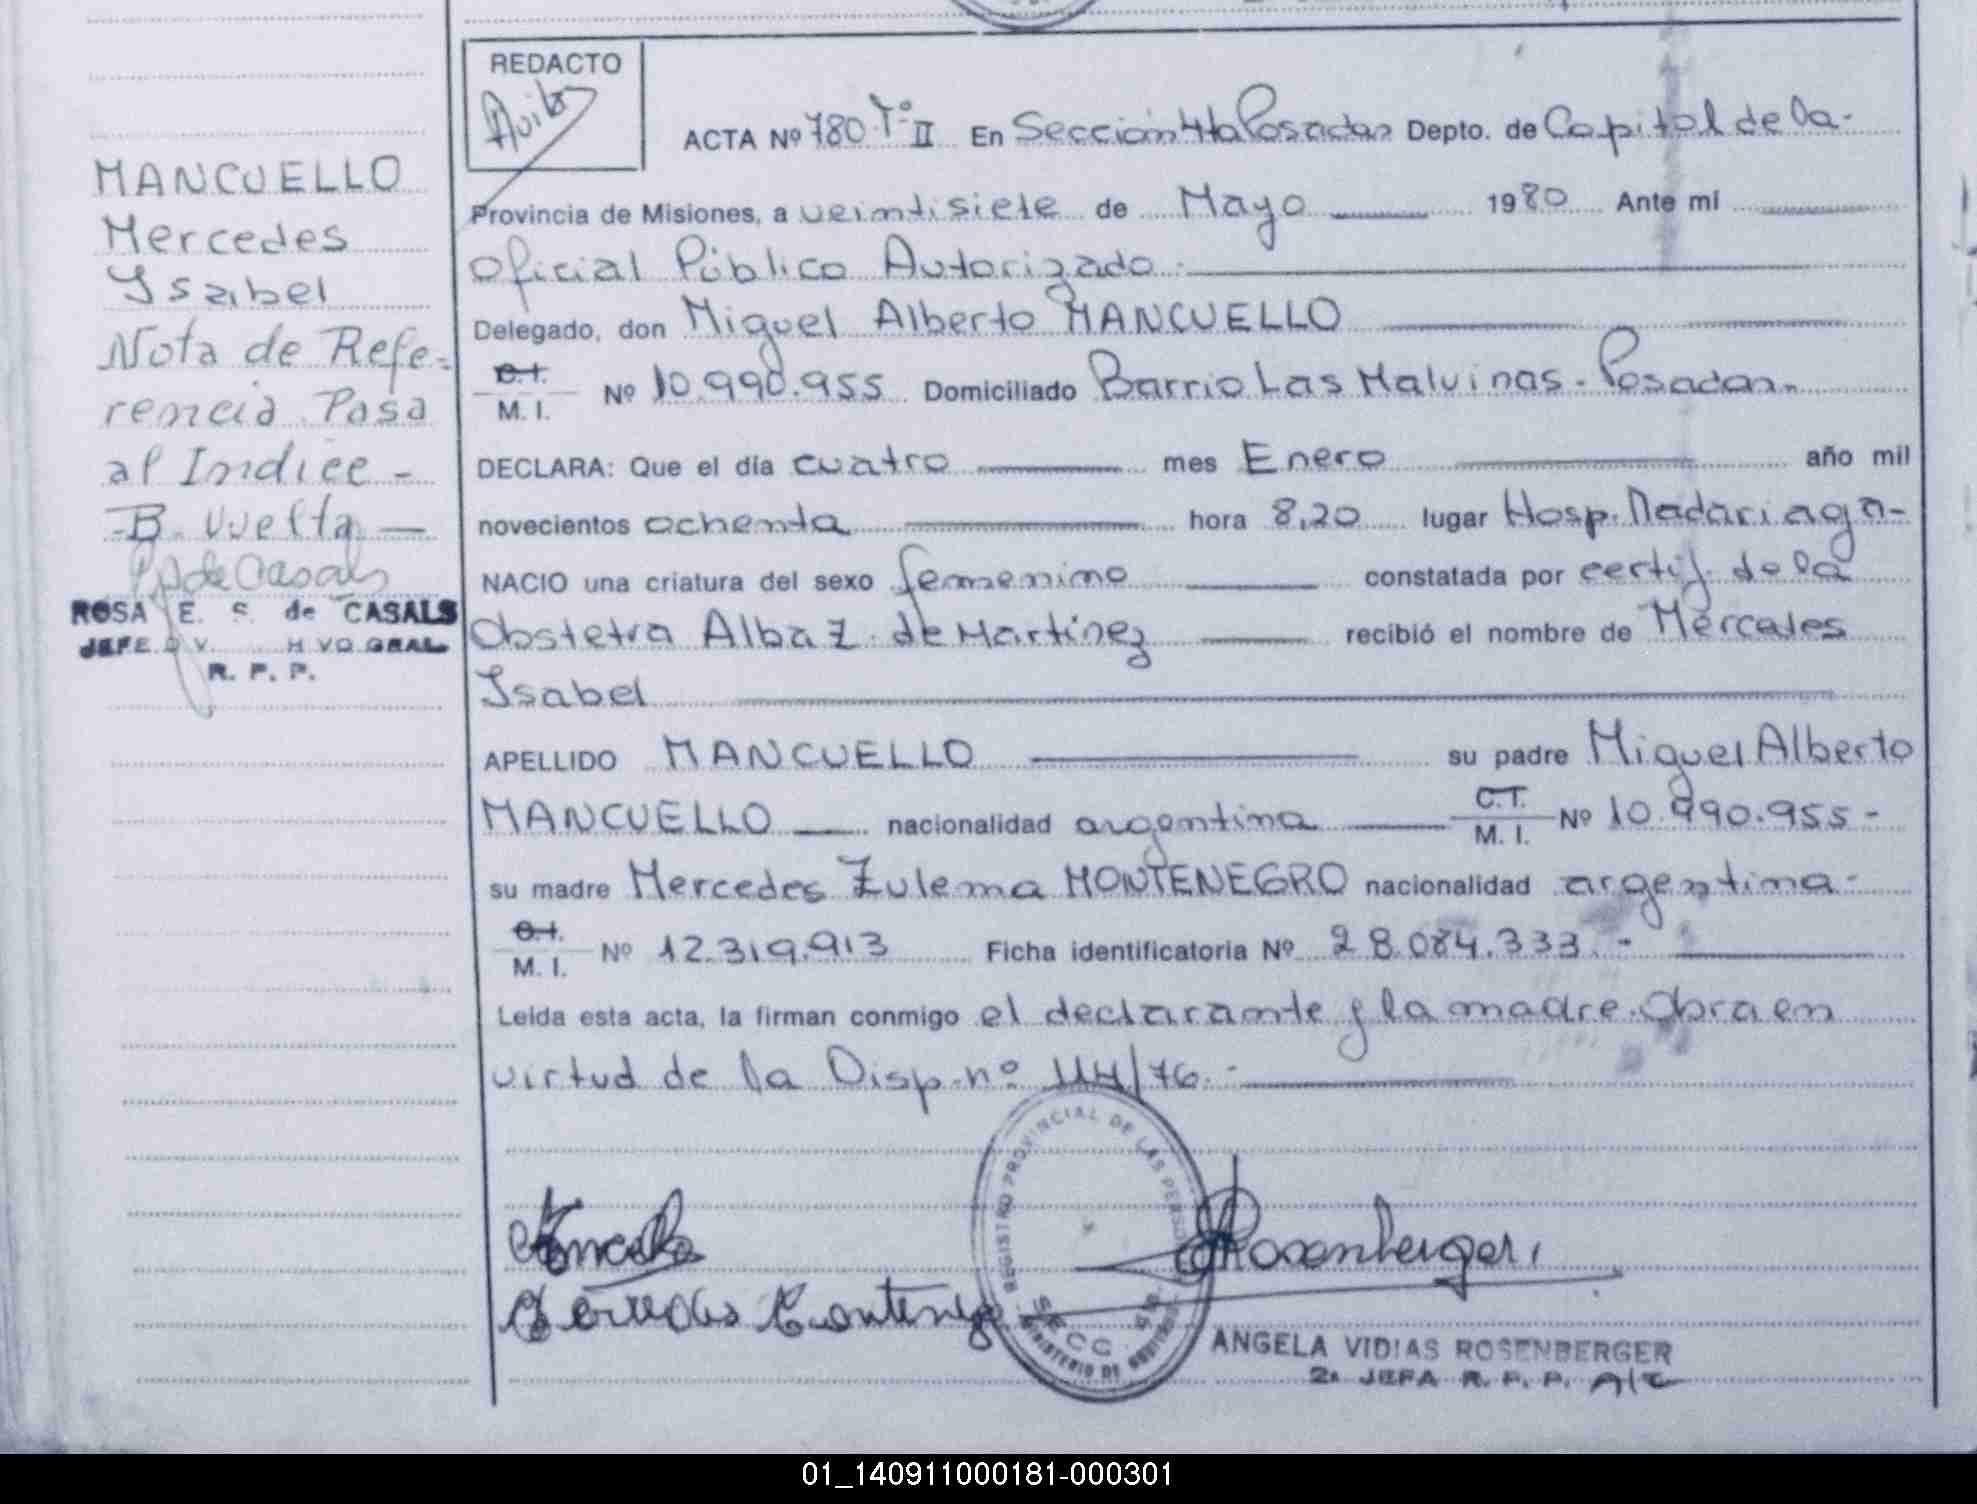 MANCUELLO
Mercedes
Ysabel
Nota de Refe-
rencia Pasa
al Indice -
- B. Vuelta -
de Casals
ROSA E. S. de CASALS
R. P. P.
REDACTO
ACTA Nº 780 Tº II En Sección 4ta Posadas Depto. de Capital de la-
Provincia de Misiones, a veintisiete de Mayo 1980 Ante mi
Oficial Público Autorizado.
Delegado, don Miguel Alberto MANCUELLO
C.I.
M. I. Nº 10.990.955 Domiciliado Barrio Las Malvinas - Posadas.
DECLARA: Que el día cuatro mes Enero año mil
novecientos ochenta hora 8,20 lugar Hosp. Madariaga-
NACIO una criatura del sexo femenino constatada por certif. de la
Obstetra Alba Z. de Martínez recibió el nombre de Mercedes
Ysabel
APELLIDO MANCUELLO su padre Miguel Alberto
MANCUELLO nacionalidad argentina C.I. M. I. Nº 10.990.955-
su madre Mercedes Zulema MONTENEGRO nacionalidad argentina-
C.I.
M. I. Nº 12.319.913 Ficha identificatoria Nº 28.084.333.-
Leída esta acta, la firman conmigo el declarante y la madre. Obra en
virtud de la Disp. nº 114/76.-
REGISTRO PROVINCIAL DE LAS PERSONAS
SECC 4ta
Rosenberger
ANGELA VIDIAS ROSENBERGER
2a JEFA R. P. P. A/C
01_140911000181-000301